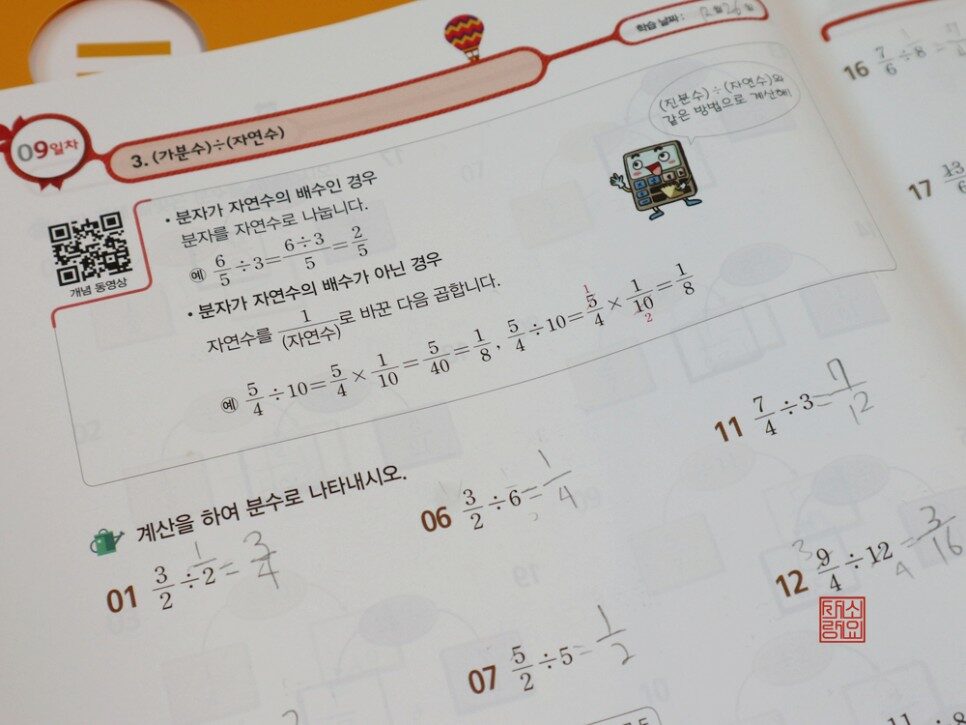 학습 날짜 : 12월 26일
09일차
3. (가분수)÷(자연수)
(진분수)÷(자연수)와
같은 방법으로 계산해!
개념 동영상
• 분자가 자연수의 배수인 경우
분자를 자연수로 나눕니다.
예 6/5÷3=6÷3/5=2/5
• 분자가 자연수의 배수가 아닌 경우
자연수를 1/(자연수)로 바꾼 다음 곱합니다.
예 5/4÷10=5/4×1/10=5/40=1/8, 5/4÷10=5/4×1/10=1/8
1
2
계산을 하여 분수로 나타내시오.
01 3/2÷2=3/4
06 3/2÷6=1/4
11 7/4÷3=7/12
16 7/6÷8=
07 5/2÷5=1/2
12 9/4÷12=3/16
3
4
17 13/6
소요
재랭